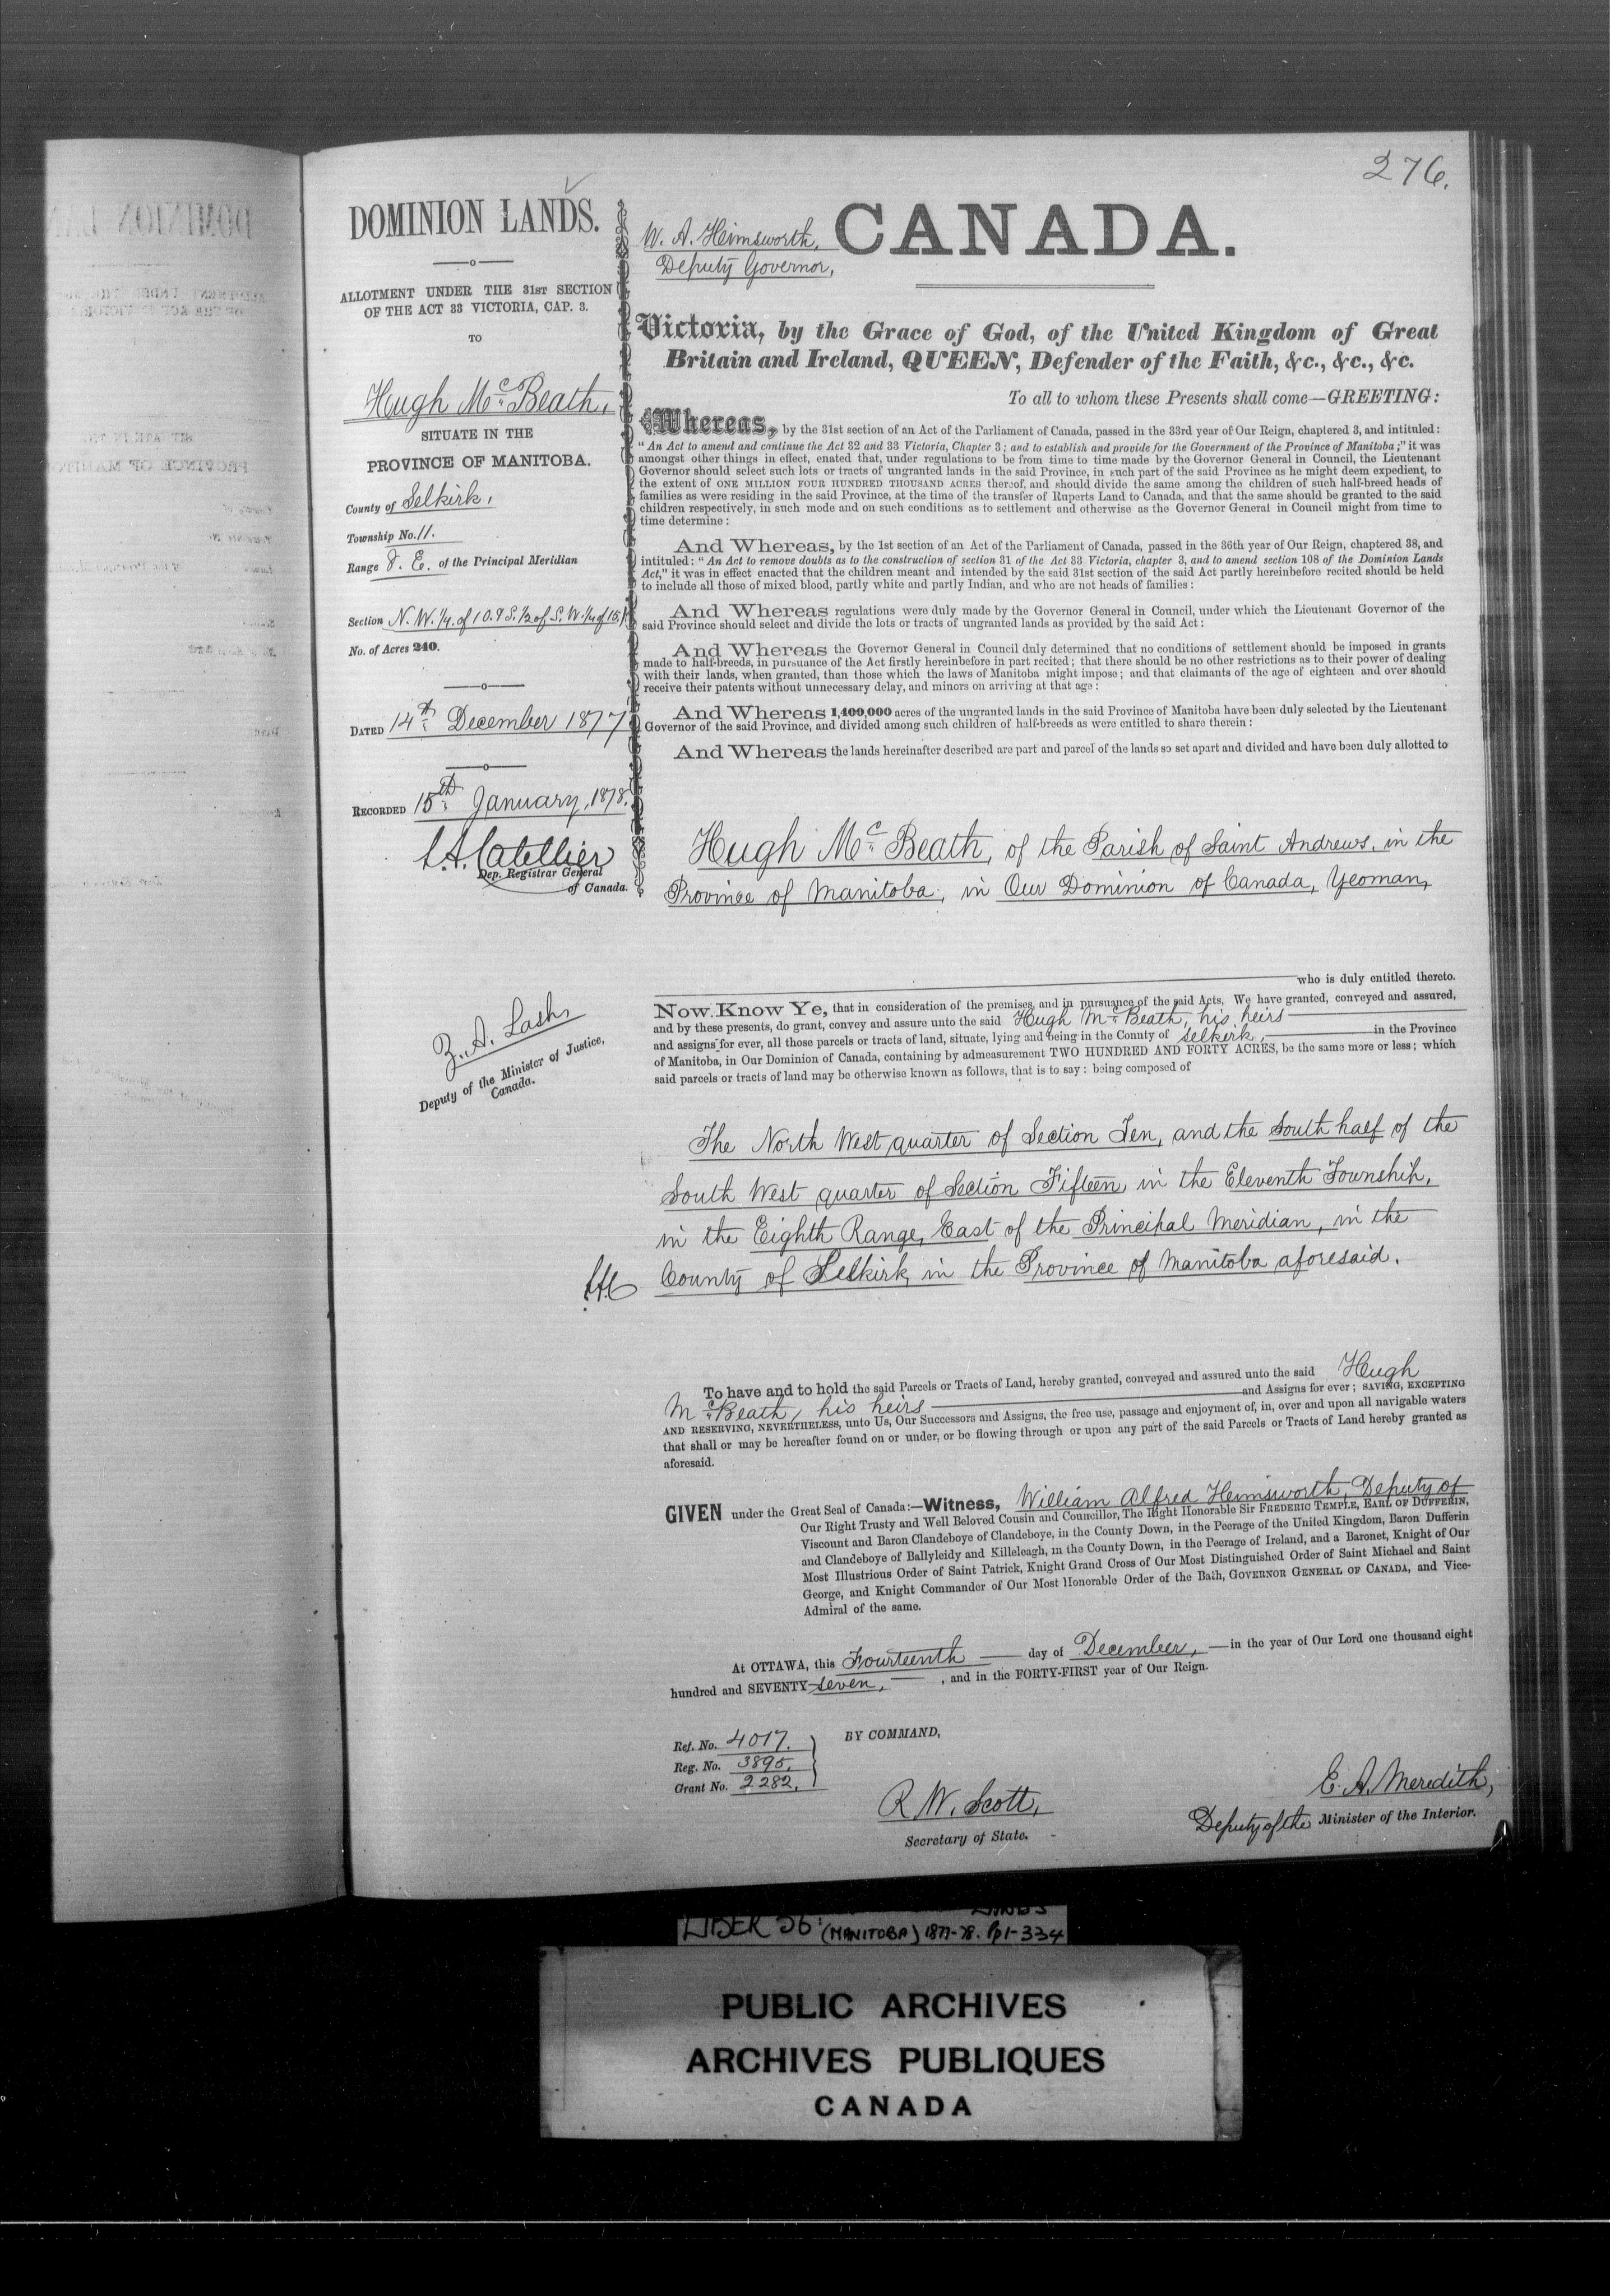 276.
DOMINION LANDS.
ALLOTMENT UNDER THE 31ST SECTION
OF THE ACT 33 VICTORIA, CAP. 3.
TO
Hugh McBeath,
SITUATE IN THE
PROVINCE OF MANITOBA.
County of Selkirk,
Township No. 11.
Range 8. E. of the Principal Meridian
Section N. W. 1/4 of 10. & S. 1/2 of S. W. 1/4 of 15.
No. of Acres 240.
DATED 14th December 1877
RECORDED 15th January, 1878.
L.A. Catellier
Dep. Registrar General
of Canada.
Z. A. Lash,
Deputy of the Minister of Justice,
Canada.
W. A. Heimsworth,
Deputy Governor,
CANADA.
Victoria, by the Grace of God, of the United Kingdom of Great
Britain and Ireland, QUEEN, Defender of the Faith, &c., &c., &c.
To all to whom these Presents shall come—GREETING:
Whereas, by the 31st section of an Act of the Parliament of Canada, passed in the 33rd year of Our Reign, chaptered 3, and intituled:
"An Act to amend and continue the Act 32 and 33 Victoria, Chapter 3; and to establish and provide for the Government of the Province of Manitoba;" it was
amongst other things in effect, enated that, under regulations to be from time to time made by the Governor General in Council, the Lieutenant
Governor should select such lots or tracts of ungranted lands in the said Province, in such part of the said Province as he might deem expedient, to
the extent of ONE MILLION FOUR HUNDRED THOUSAND ACRES thereof, and should divide the same among the children of such half-breed heads of
families as were residing in the said Province, at the time of the transfer of Ruperts Land to Canada, and that the same should be granted to the said
children respectively, in such mode and on such conditions as to settlement and otherwise as the Governor General in Council might from time to
time determine:
And Whereas, by the 1st section of an Act of the Parliament of Canada, passed in the 36th year of Our Reign, chaptered 38, and
intituled: "An Act to remove doubts as to the construction of section 31 of the Act 33 Victoria, chapter 3, and to amend section 108 of the Dominion Lands
Act," it was in effect enacted that the children meant and intended by the said 31st section of the said Act partly hereinbefore recited should be held
to include all those of mixed blood, partly white and partly Indian, and who are not heads of families:
And Whereas regulations were duly made by the Governor General in Council, under which the Lieutenant Governor of the
said Province should select and divide the lots or tracts of ungranted lands as provided by the said Act:
And Whereas the Governor General in Council duly determined that no conditions of settlement should be imposed in grants
made to half-breeds, in pursuance of the Act firstly hereinbefore in part recited; that there should be no other restrictions as to their power of dealing
with their lands, when granted, than those which the laws of Manitoba might impose; and that claimants of the age of eighteen and over should
receive their patents without unnecessary delay, and minors on arriving at that age:
And Whereas 1,400,000 acres of the ungranted lands in the said Province of Manitoba have been duly selected by the Lieutenant
Governor of the said Province, and divided among such children of half-breeds as were entitled to share therein:
And Whereas the lands hereinafter described are part and parcel of the lands so set apart and divided and have been duly allotted to
Hugh McBeath, of the Parish of Saint Andrews, in the
Province of Manitoba, in Our Dominion of Canada, Yeoman,
who is duly entitled thereto.
Now Know Ye, that in consideration of the premises, and in pursuance of the said Acts, We have granted, conveyed and assured,
and by these presents, do grant, convey and assure unto the said Hugh McBeath, his heirs
and assigns for ever, all those parcels or tracts of land, situate, lying and being in the County of Selkirk, in the Province
of Manitoba, in Our Dominion of Canada, containing by admeasurement TWO HUNDRED AND FORTY ACRES, be the same more or less; which
said parcels or tracts of land may be otherwise known as follows, that is to say: being composed of
The North West quarter of Section Ten, and the South half of the
South West quarter of Section Fifteen, in the Eleventh Township,
in the Eighth Range, East of the Principal Meridian, in the
County of Selkirk, in the Province of Manitoba aforesaid.
To have and to hold the said Parcels or Tracts of Land, hereby granted, conveyed and assured unto the said Hugh
McBeath, his heirs and Assigns for ever; SAVING, EXCEPTING
AND RESERVING, NEVERTHELESS, unto Us, Our Successors and Assigns, the free use, passage and enjoyment of, in, over and upon all navigable waters
that shall or may be hereafter found on or under, or be flowing through or upon any part of the said Parcels or Tracts of Land hereby granted as
aforesaid.
GIVEN under the Great Seal of Canada:—Witness, William Alfred Heimsworth, Deputy of
Our Right Trusty and Well Beloved Cousin and Councillor, The Right Honorable Sir FREDERIC TEMPLE, EARL OF DUFFERIN,
Viscount and Baron Clandeboye of Clandeboye, in the County Down, in the Peerage of the United Kingdom, Baron Dufferin
and Clandeboye of Ballyleidy and Killeleagh, in the County Down, in the Peerage of Ireland, and a Baronet, Knight of Our
Most Illustrious Order of Saint Patrick, Knight Grand Cross of Our Most Distinguished Order of Saint Michael and Saint
George, and Knight Commander of Our Most Honorable Order of the Bath, GOVERNOR GENERAL OF CANADA, and Vice-
Admiral of the same.
At OTTAWA, this Fourteenth day of December, in the year of Our Lord one thousand eight
hundred and SEVENTY-seven, , and in the FORTY-FIRST year of Our Reign.
Ref. No. 4017.
Reg. No. 3895.
Grant No. 2282.
BY COMMAND,
R. W. Scott,
Secretary of State.
E. A. Meredith,
Deputy of the Minister of the Interior.
LIBER 56: (MANITOBA) 1877-78. Pp 1-334
PUBLIC ARCHIVES
ARCHIVES PUBLIQUES
CANADA